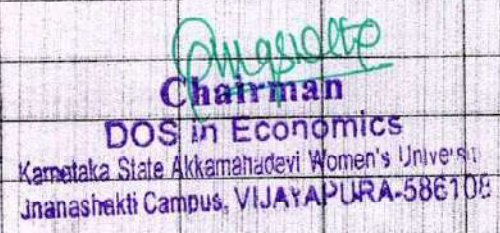 Chairman
DOS in Economics
Karnataka State Akkamahadevi Women's Universi
Jnanashakti Campus, VIJAYAPURA-586108